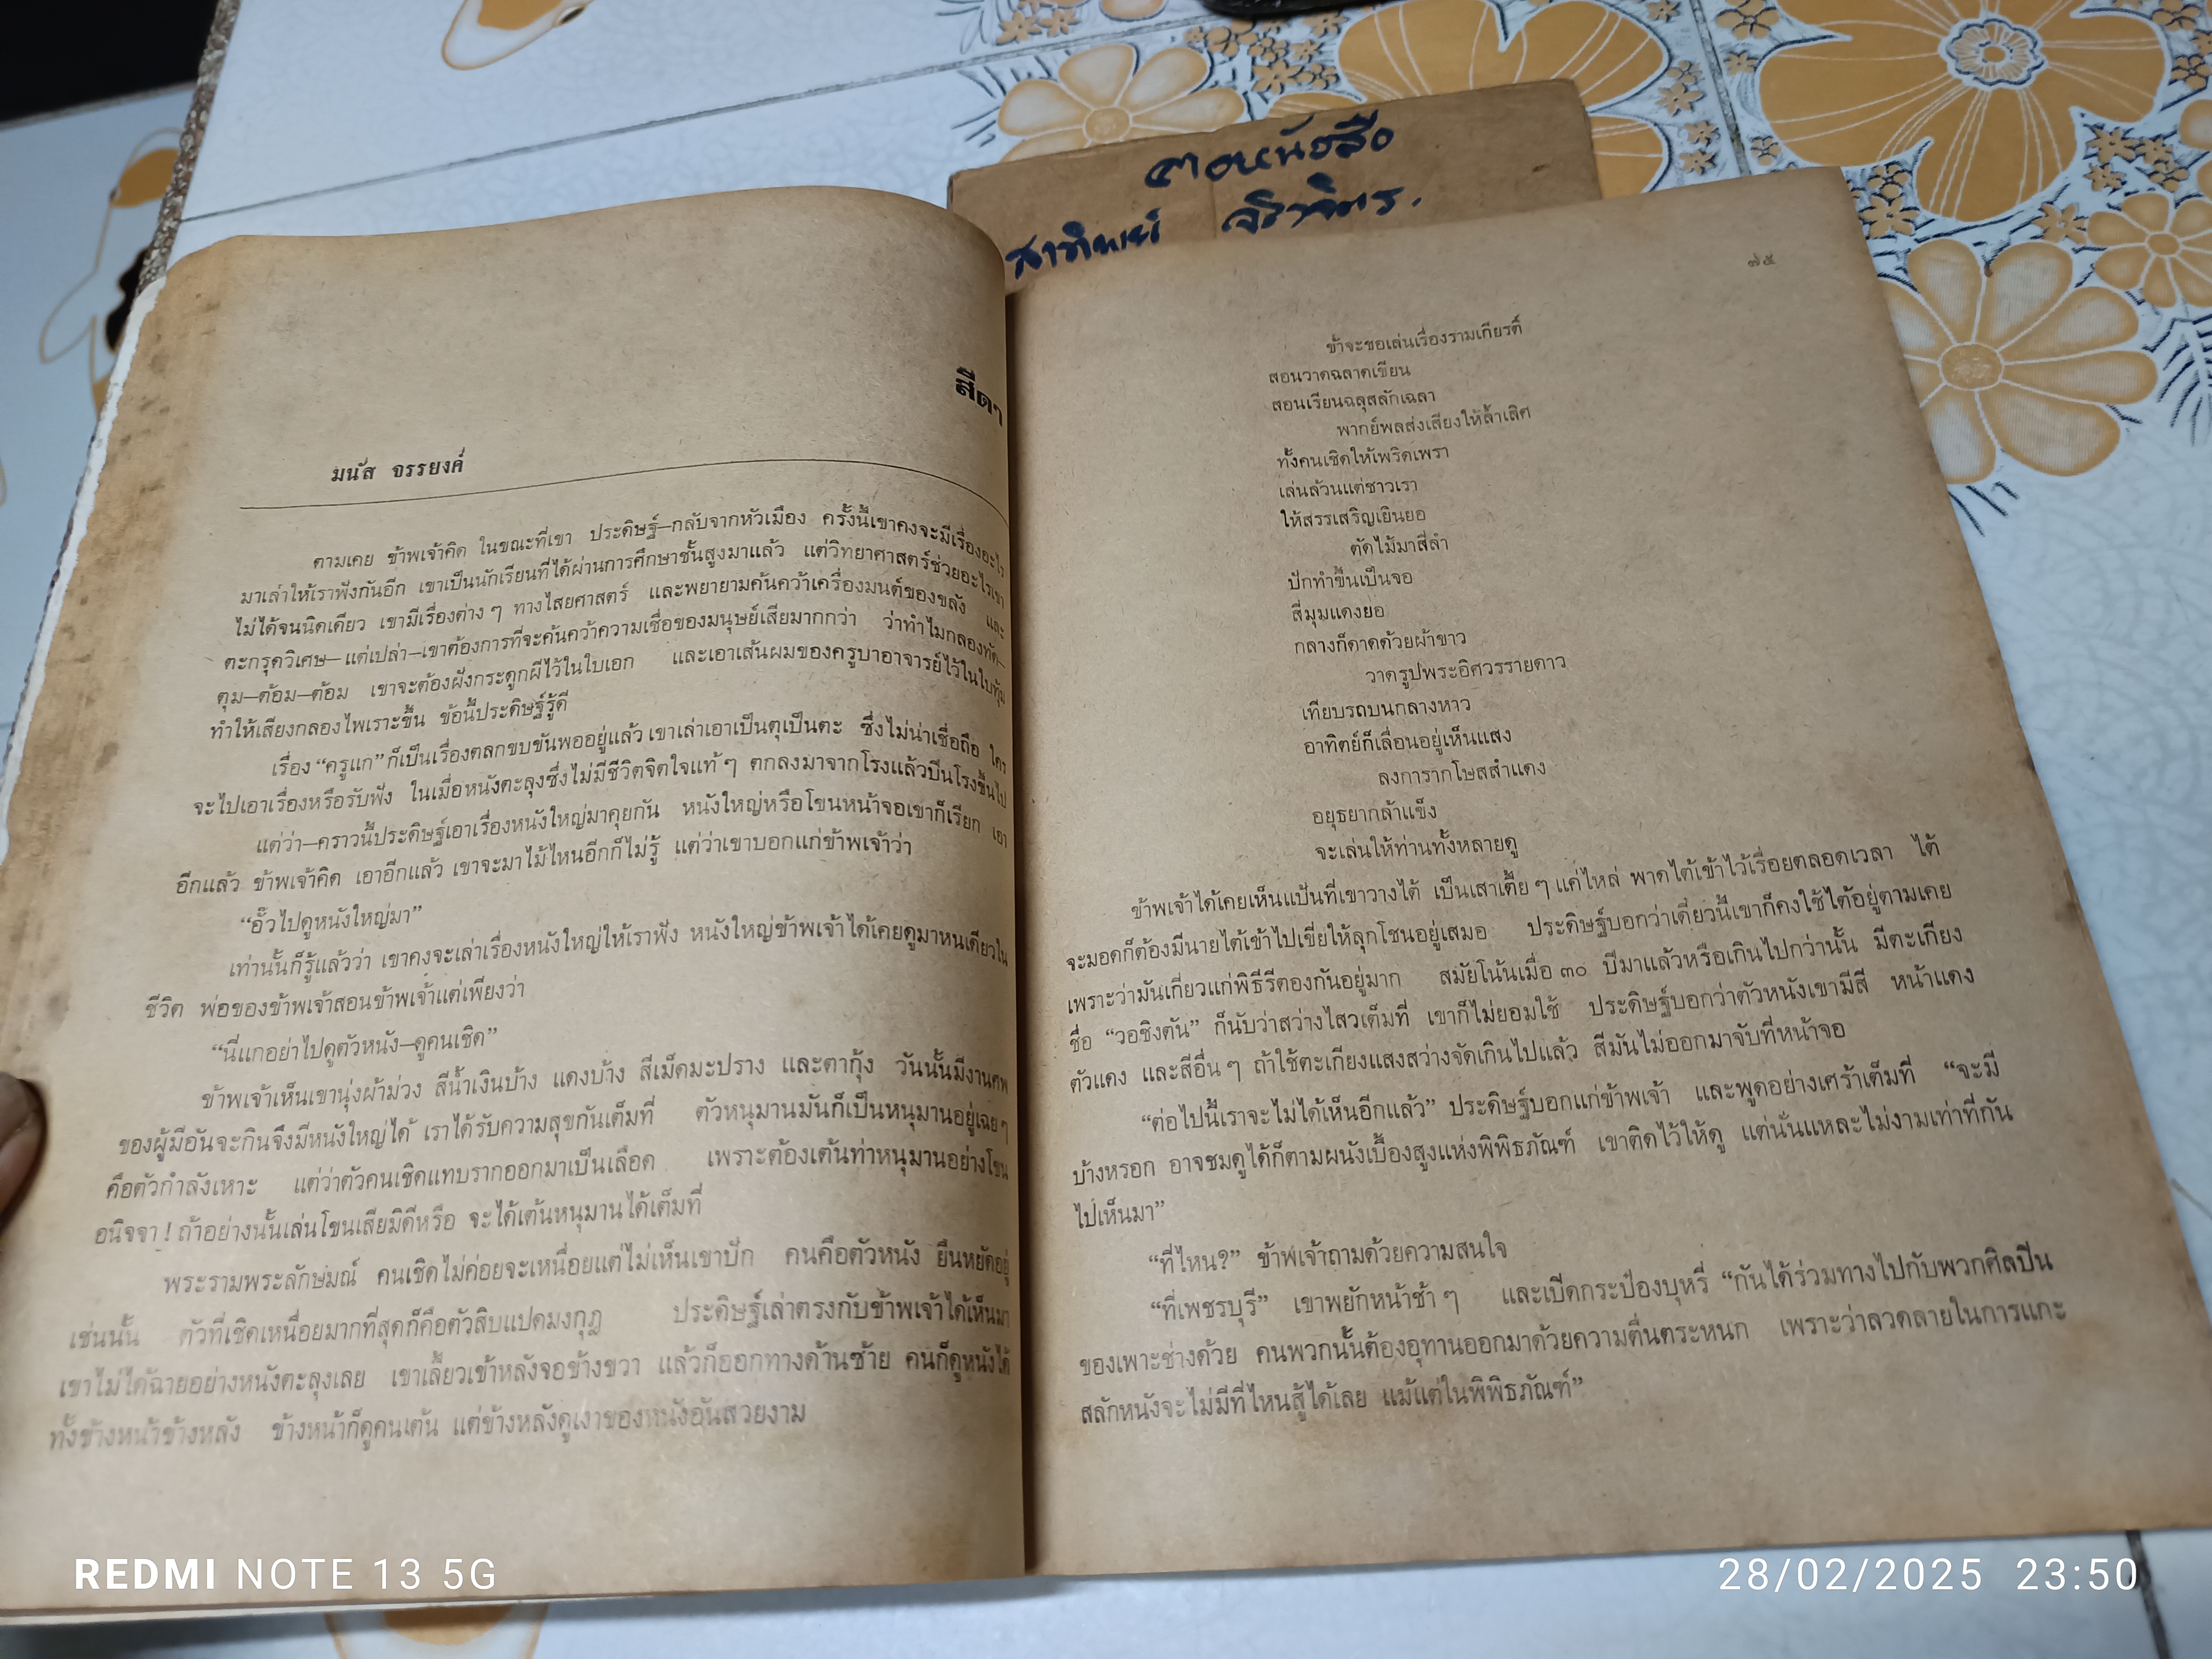 คอหนังสือ
สาทิพย์
สีดา
มนัส จรรยงค์
ตามเคย ข้าพเจ้าคิด ในขณะที่เขา ประดิษฐ์—กลับจากหัวเมือง ครั้งนี้เขาคงจะมีเรื่องอะไร
มาเล่าให้เราฟังกันอีก เขาเป็นนักเรียนที่ได้ผ่านการศึกษาชั้นสูงมาแล้ว แต่วิทยาศาสตร์ช่วยอะไรเขา
ไม่ได้จนนิดเดียว เขามีเรื่องต่าง ๆ ทางไสยศาสตร์ และพยายามค้นคว้าเครื่องมนต์ของขลัง และ
ตะกรุดวิเศษ—แต่เปล่า—เขาต้องการที่จะค้นคว้าความเชื่อของมนุษย์เสียมากกว่า ว่าทำไมกลองทัด—
ตุม—ต้อม—ต้อม เขาจะต้องฝังกระดูกผีไว้ในใบเอก และเอาเส้นผมของครูบาอาจารย์ไว้ในใบทุ้ม
ทำให้เสียงกลองไพเราะขึ้น ข้อนี้ประดิษฐ์รู้ดี
เรื่อง “ครูแก” ก็เป็นเรื่องตลกขบขันพออยู่แล้ว เขาเล่าเอาเป็นตุเป็นตะ ซึ่งไม่น่าเชื่อถือ ใคร
จะไปเอาเรื่องหรือรับฟัง ในเมื่อหนังตะลุงซึ่งไม่มีชีวิตจิตใจแท้ ๆ ตกลงมาจากโรงแล้วปีนโรงขึ้นไป
แต่ว่า—คราวนี้ประดิษฐ์เอาเรื่องหนังใหญ่มาคุยกัน หนังใหญ่หรือโขนหน้าจอเขาก็เรียก เอา
อีกแล้ว ข้าพเจ้าคิด เอาอีกแล้ว เขาจะมาไม้ไหนอีกก็ไม่รู้ แต่ว่าเขาบอกแก่ข้าพเจ้าว่า
“อั๊วไปดูหนังใหญ่มา”
เท่านั้นก็รู้แล้วว่า เขาคงจะเล่าเรื่องหนังใหญ่ให้เราฟัง หนังใหญ่ข้าพเจ้าได้เคยดูมาหนเดียวใน
ชีวิต พ่อของข้าพเจ้าสอนข้าพเจ้าแต่เพียงว่า
“นี่แกอย่าไปดูตัวหนัง—ดูคนเชิด”
ข้าพเจ้าเห็นเขานุ่งผ้าม่วง สีน้ำเงินบ้าง แดงบ้าง สีเม็ดมะปราง และตากุ้ง วันนั้นมีงานศพ
ของผู้มีอันจะกินจึงมีหนังใหญ่ได้ เราได้รับความสุขกันเต็มที่ ตัวหนุมานมันก็เป็นหนุมานอยู่เฉย ๆ
คือตัวกำลังเหาะ แต่ว่าตัวคนเชิดแทบรากออกมาเป็นเลือด เพราะต้องเต้นท่าหนุมานอย่างโขน
อนิจจา ! ถ้าอย่างนั้นเล่นโขนเสียมิดีหรือ จะได้เต้นหนุมานได้เต็มที่
พระรามพระลักษมณ์ คนเชิดไม่ค่อยจะเหนื่อยแต่ไม่เห็นเขาปัก คนคือตัวหนัง ยืนหยัดอยู่
เช่นนั้น ตัวที่เชิดเหนื่อยมากที่สุดก็คือตัวสิบแปดมงกุฎ ประดิษฐ์เล่าตรงกับข้าพเจ้าได้เห็นมา
เขาไม่ได้ฉายอย่างหนังตะลุงเลย เขาเลี้ยวเข้าหลังจอข้างขวา แล้วก็ออกทางด้านซ้าย คนก็ดูหนังได้
ทั้งข้างหน้าข้างหลัง ข้างหน้าก็ดูคนเต้น แต่ข้างหลังดูเงาของหนังอันสวยงาม
๗๕
ข้าจะขอเล่นเรื่องรามเกียรติ์
สอนวาดฉลาดเขียน
สอนเรียนฉลุสลักเฉลา
พากย์พลส่งเสียงให้ล้ำเลิศ
ทั้งคนเชิดให้เพริดเพรา
เล่นล้วนแต่ชาวเรา
ให้สรรเสริญเยินยอ
ตัดไม้มาสี่ลำ
ปักทำขึ้นเป็นจอ
สี่มุมแดงยอ
กลางก็ดาดด้วยผ้าขาว
วาดรูปพระอิศวรรายดาว
เทียบรถบนกลางหาว
อาทิตย์ก็เลื่อนอยู่เห็นแสง
ลงการากโษสสำแดง
อยุธยากล้าแข็ง
จะเล่นให้ท่านทั้งหลายดู
ข้าพเจ้าได้เคยเห็นแป้นที่เขาวางไต้ เป็นเสาเตี้ย ๆ แค่ไหล่ พาดไต้เข้าไว้เรื่อยตลอดเวลา ไต้
จะมอดก็ต้องมีนายไต้เข้าไปเขี่ยให้ลุกโชนอยู่เสมอ ประดิษฐ์บอกว่าเดี๋ยวนี้เขาก็คงใช้ไต้อยู่ตามเคย
เพราะว่ามันเกี่ยวแก่พิธีรีตองกันอยู่มาก สมัยโน้นเมื่อ ๓๐ ปีมาแล้วหรือเกินไปกว่านั้น มีตะเกียง
ชื่อ “วอชิงตัน” ก็นับว่าสว่างไสวเต็มที่ เขาก็ไม่ยอมใช้ ประดิษฐ์บอกว่าตัวหนังเขามีสี หน้าแดง
ตัวแดง และสีอื่น ๆ ถ้าใช้ตะเกียงแสงสว่างจัดเกินไปแล้ว สีมันไม่ออกมาจับที่หน้าจอ
“ต่อไปนี้เราจะไม่ได้เห็นอีกแล้ว” ประดิษฐ์บอกแก่ข้าพเจ้า และพูดอย่างเศร้าเต็มที่ “จะมี
บ้างหรอก อาจชมดูได้ก็ตามผนังเบื้องสูงแห่งพิพิธภัณฑ์ เขาติดไว้ให้ดู แต่นั่นแหละไม่งามเท่าที่กัน
ไปเห็นมา”
“ที่ไหน?” ข้าพเจ้าถามด้วยความสนใจ
“ที่เพชรบุรี” เขาพยักหน้าช้า ๆ และเปิดกระป๋องบุหรี่ “กันได้ร่วมทางไปกับพวกศิลปิน
ของเพาะช่างด้วย คนพวกนั้นต้องอุทานออกมาด้วยความตื่นตระหนก เพราะว่าลวดลายในการแกะ
สลักหนังจะไม่มีที่ไหนสู้ได้เลย แม้แต่ในพิพิธภัณฑ์”
REDMI NOTE 13 5G
28/02/2025 23:50